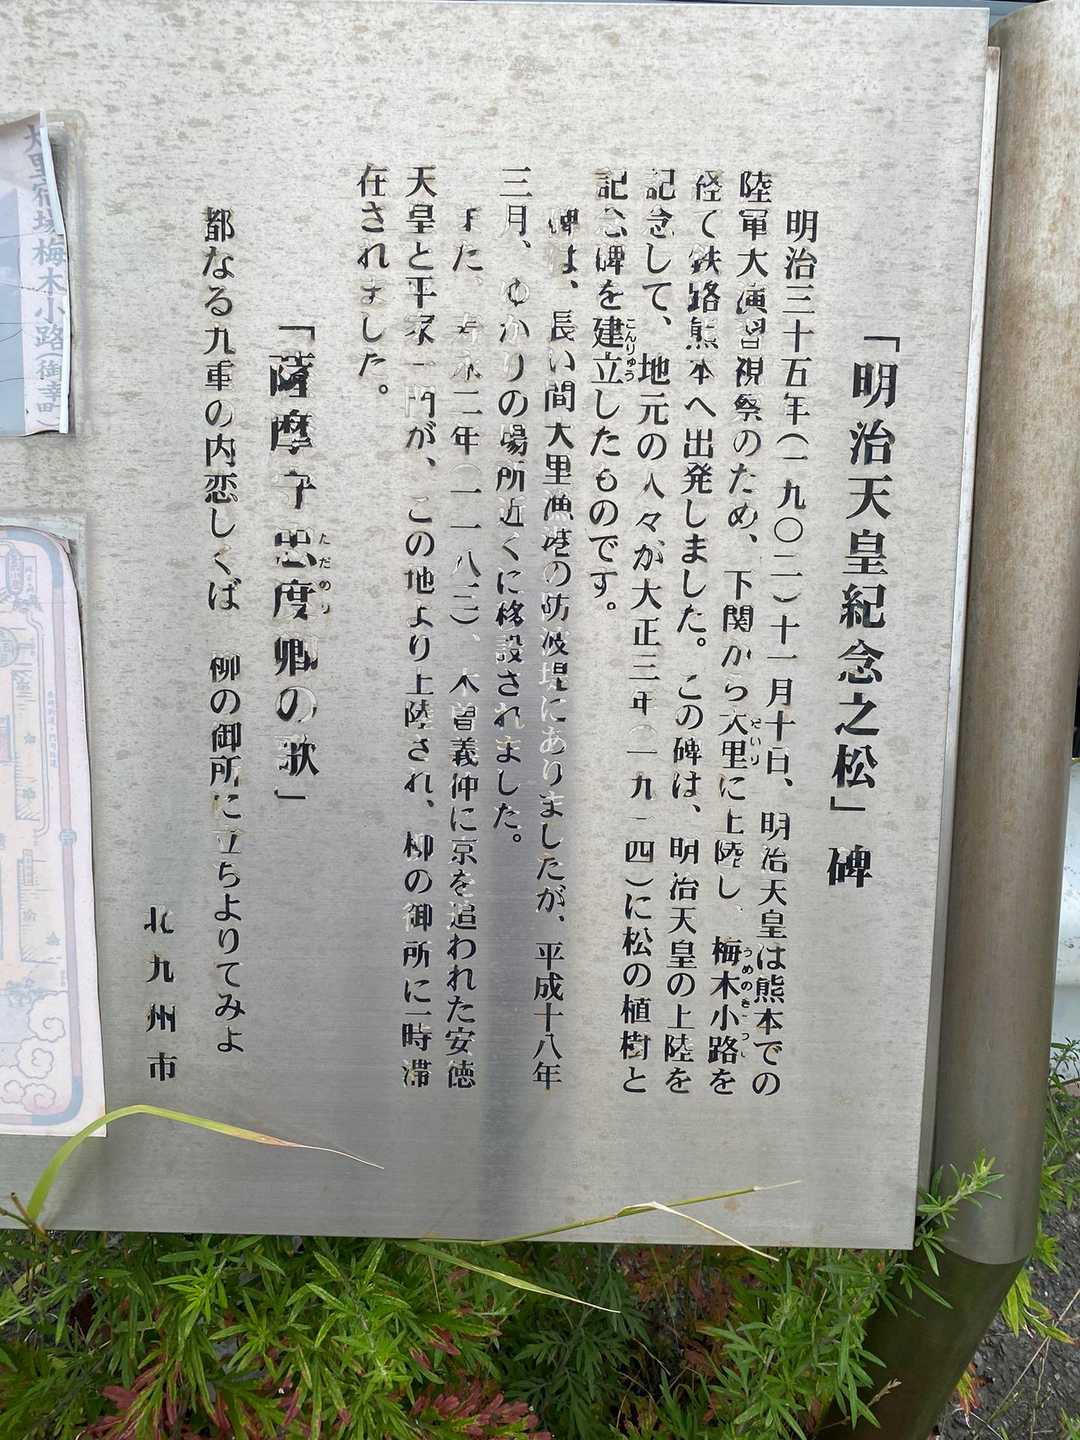 「明治天皇紀念之松」碑
明治三十五年（一九〇二）十一月十日、明治天皇は熊本での
陸軍大演習視察のため、下関から大里に上陸し、梅木小路を
だいり
うめのきこうじ
経て鉄路熊本へ出発しました。この碑は、明治天皇の上陸を
記念して、地元の人々が大正三年（一九一四）に松の植樹と
記念碑を建立したものです。
こんりゅう
碑は、長い間大里漁港の防波堤にありましたが、平成十八年
三月、ゆかりの場所近くに移設されました。
また、寿永二年（一一八三）、木曽義仲に京を追われた安徳
天皇と平家一門が、この地より上陸され、柳の御所に一時滞
在されました。
「薩摩守忠度卿の歌」
ただのり
都なる九重の内恋しくば　柳の御所に立ちよりてみよ
北九州市
大里宿場梅木小路（御幸町）